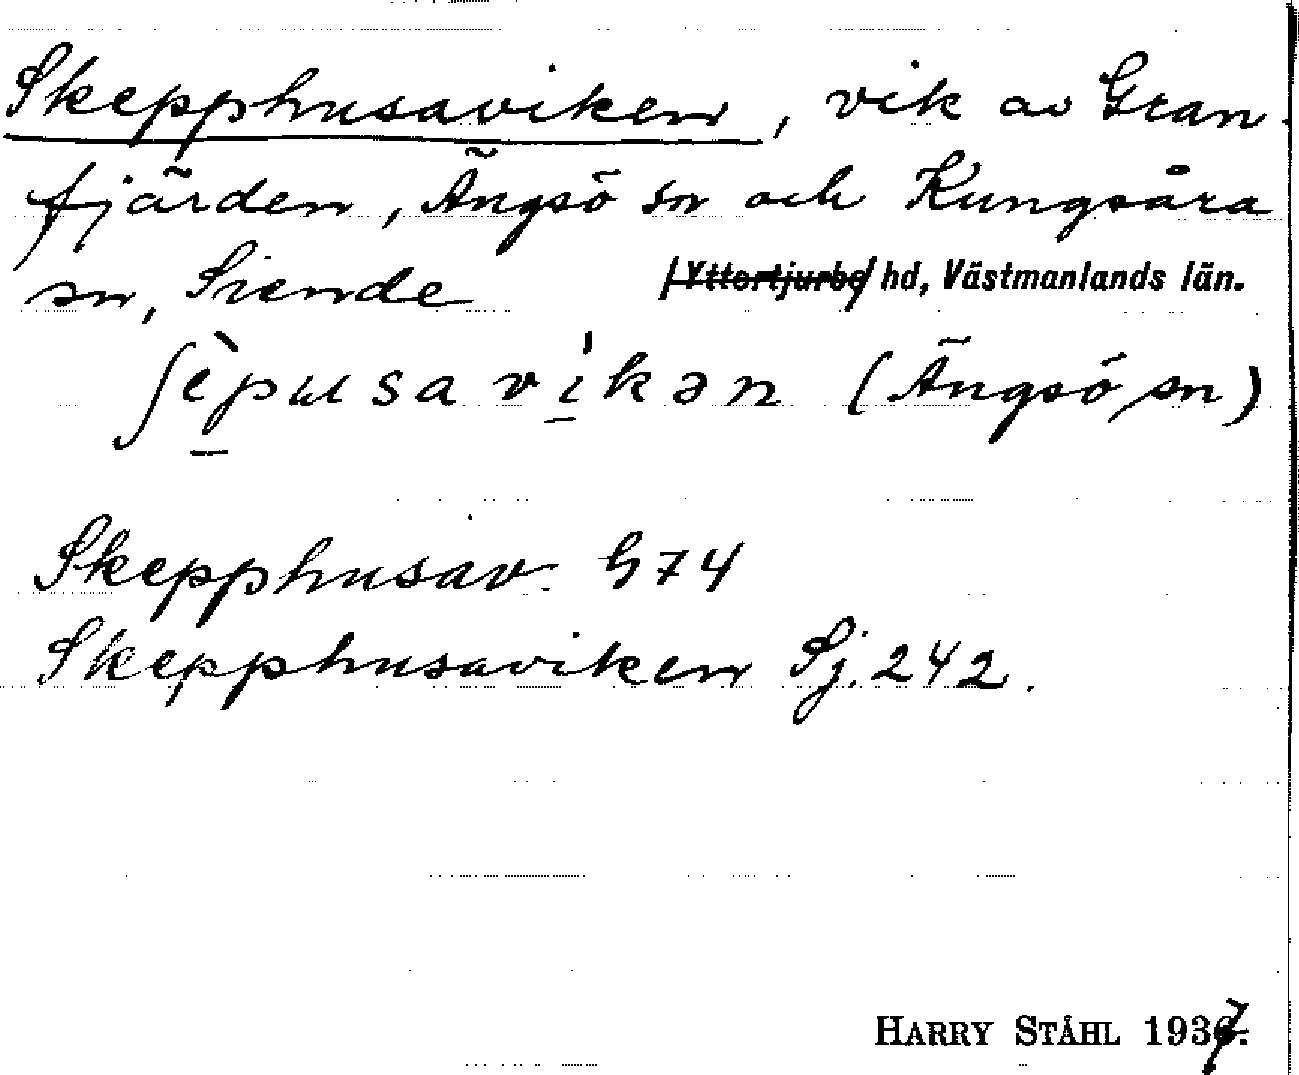 Skepphusaviken, vik av Gran-
fjärden, Ängsö sn och Kungsåra
sn, Siende /Yttertjurbo/ hd, Västmanlands län.
ʃèpusavikən (Ängsö sn)
Skepphusav. G74
Skepphusaviken Sj. 242.
HARRY STÅHL 1937.